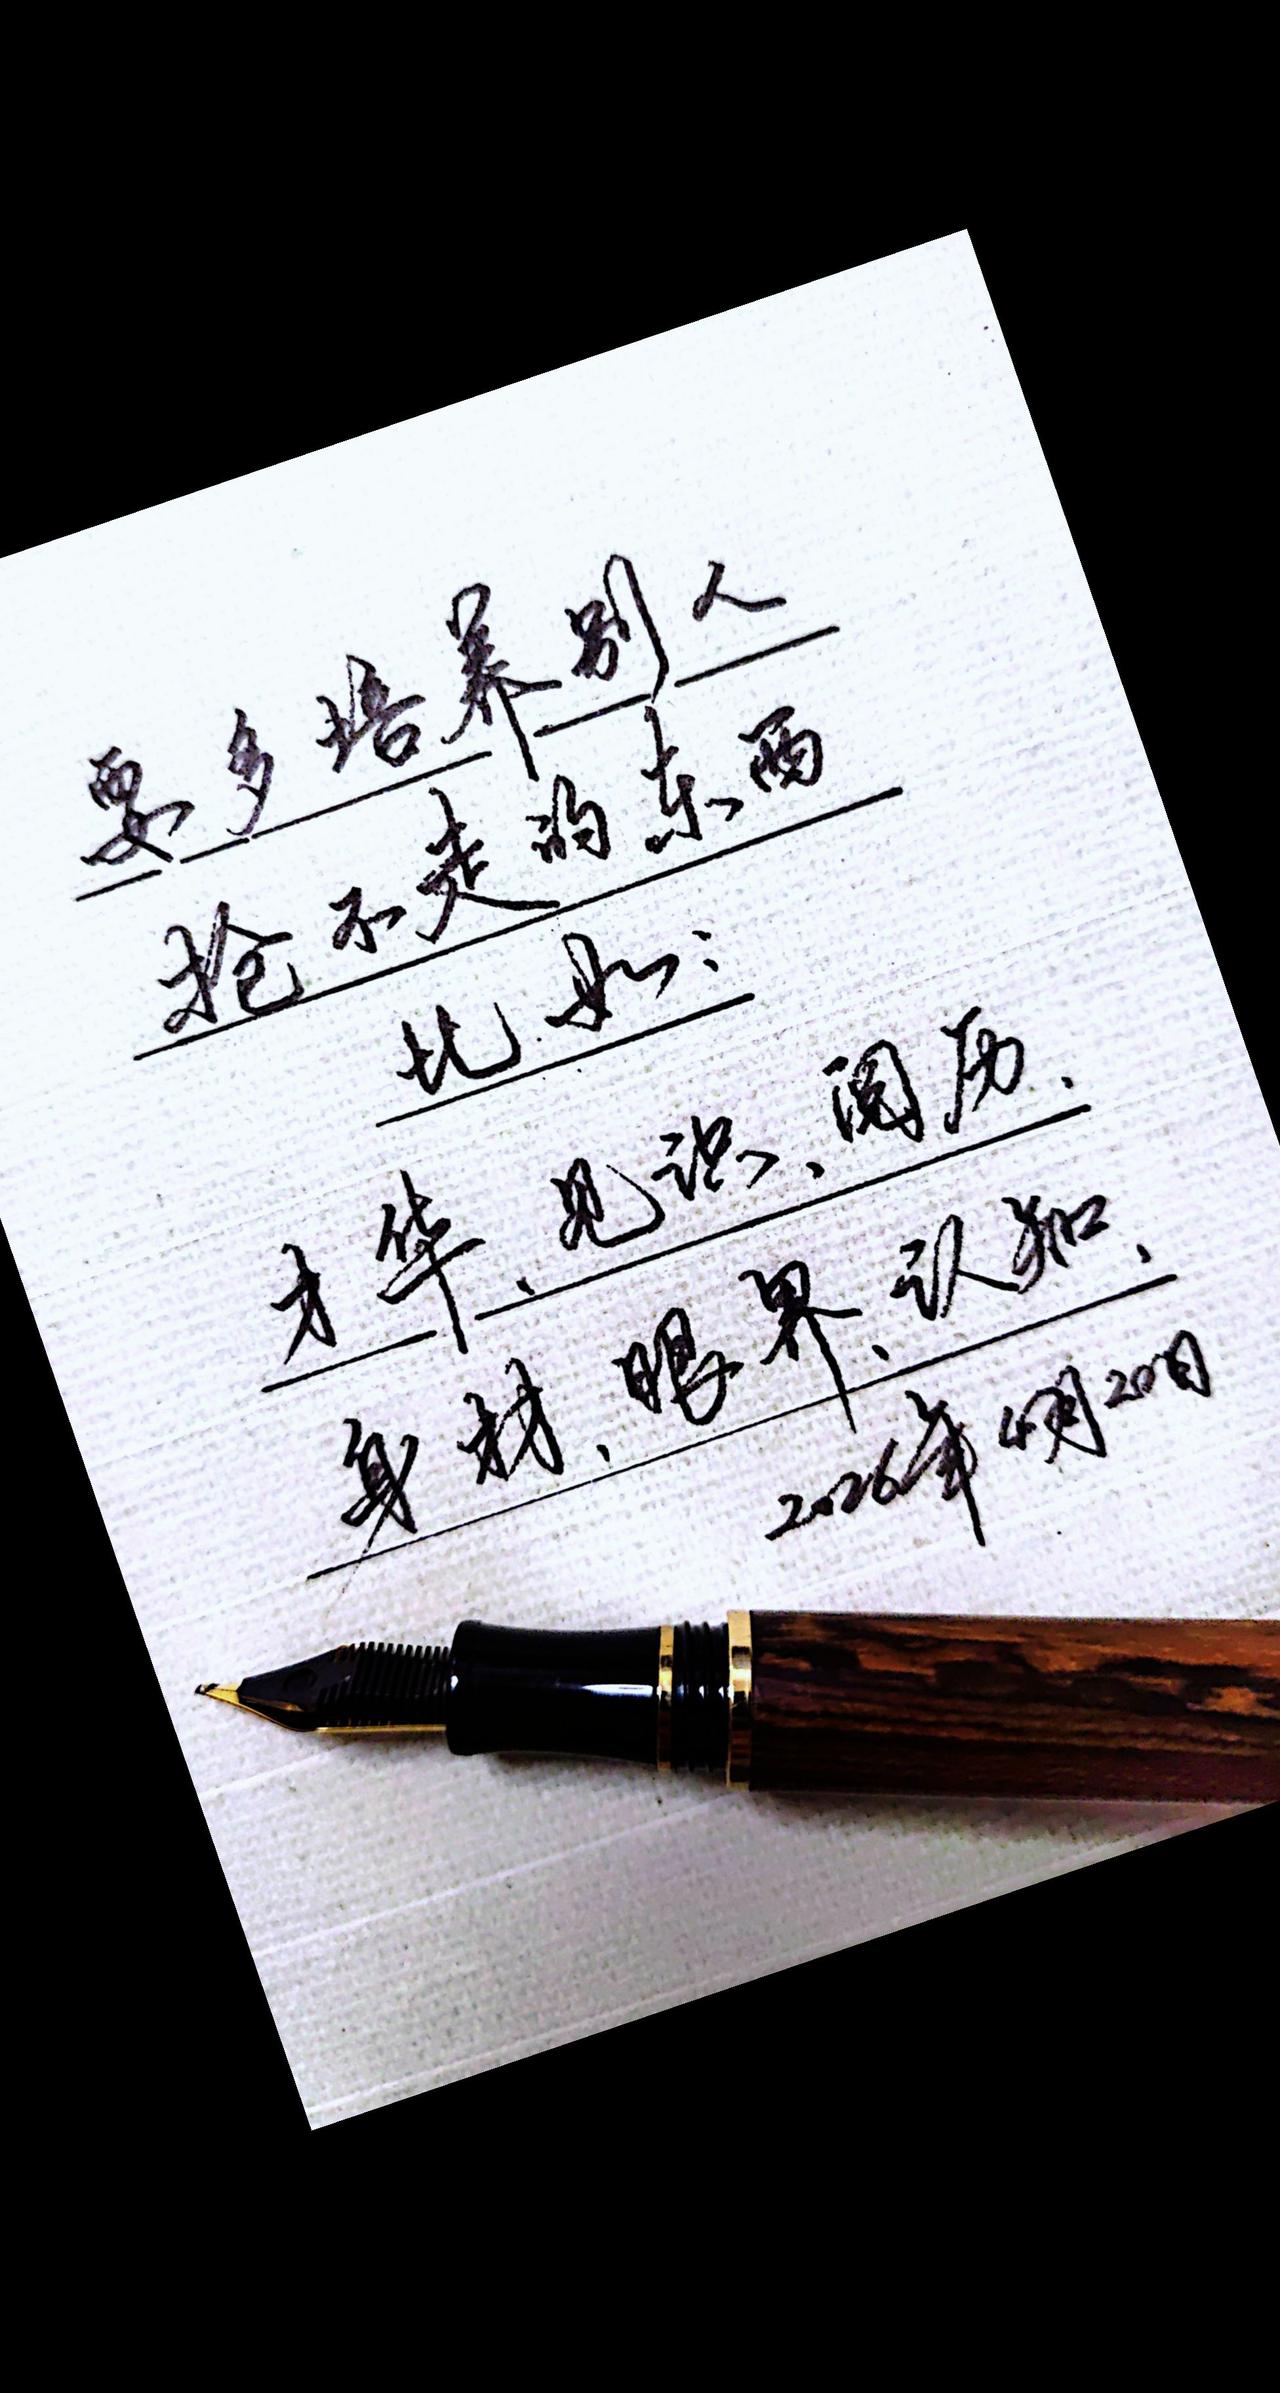 要多培养别人
抢不走的东西
比如:
才华、见识、阅历、
身材、眼界、认知、
2026年4月20日